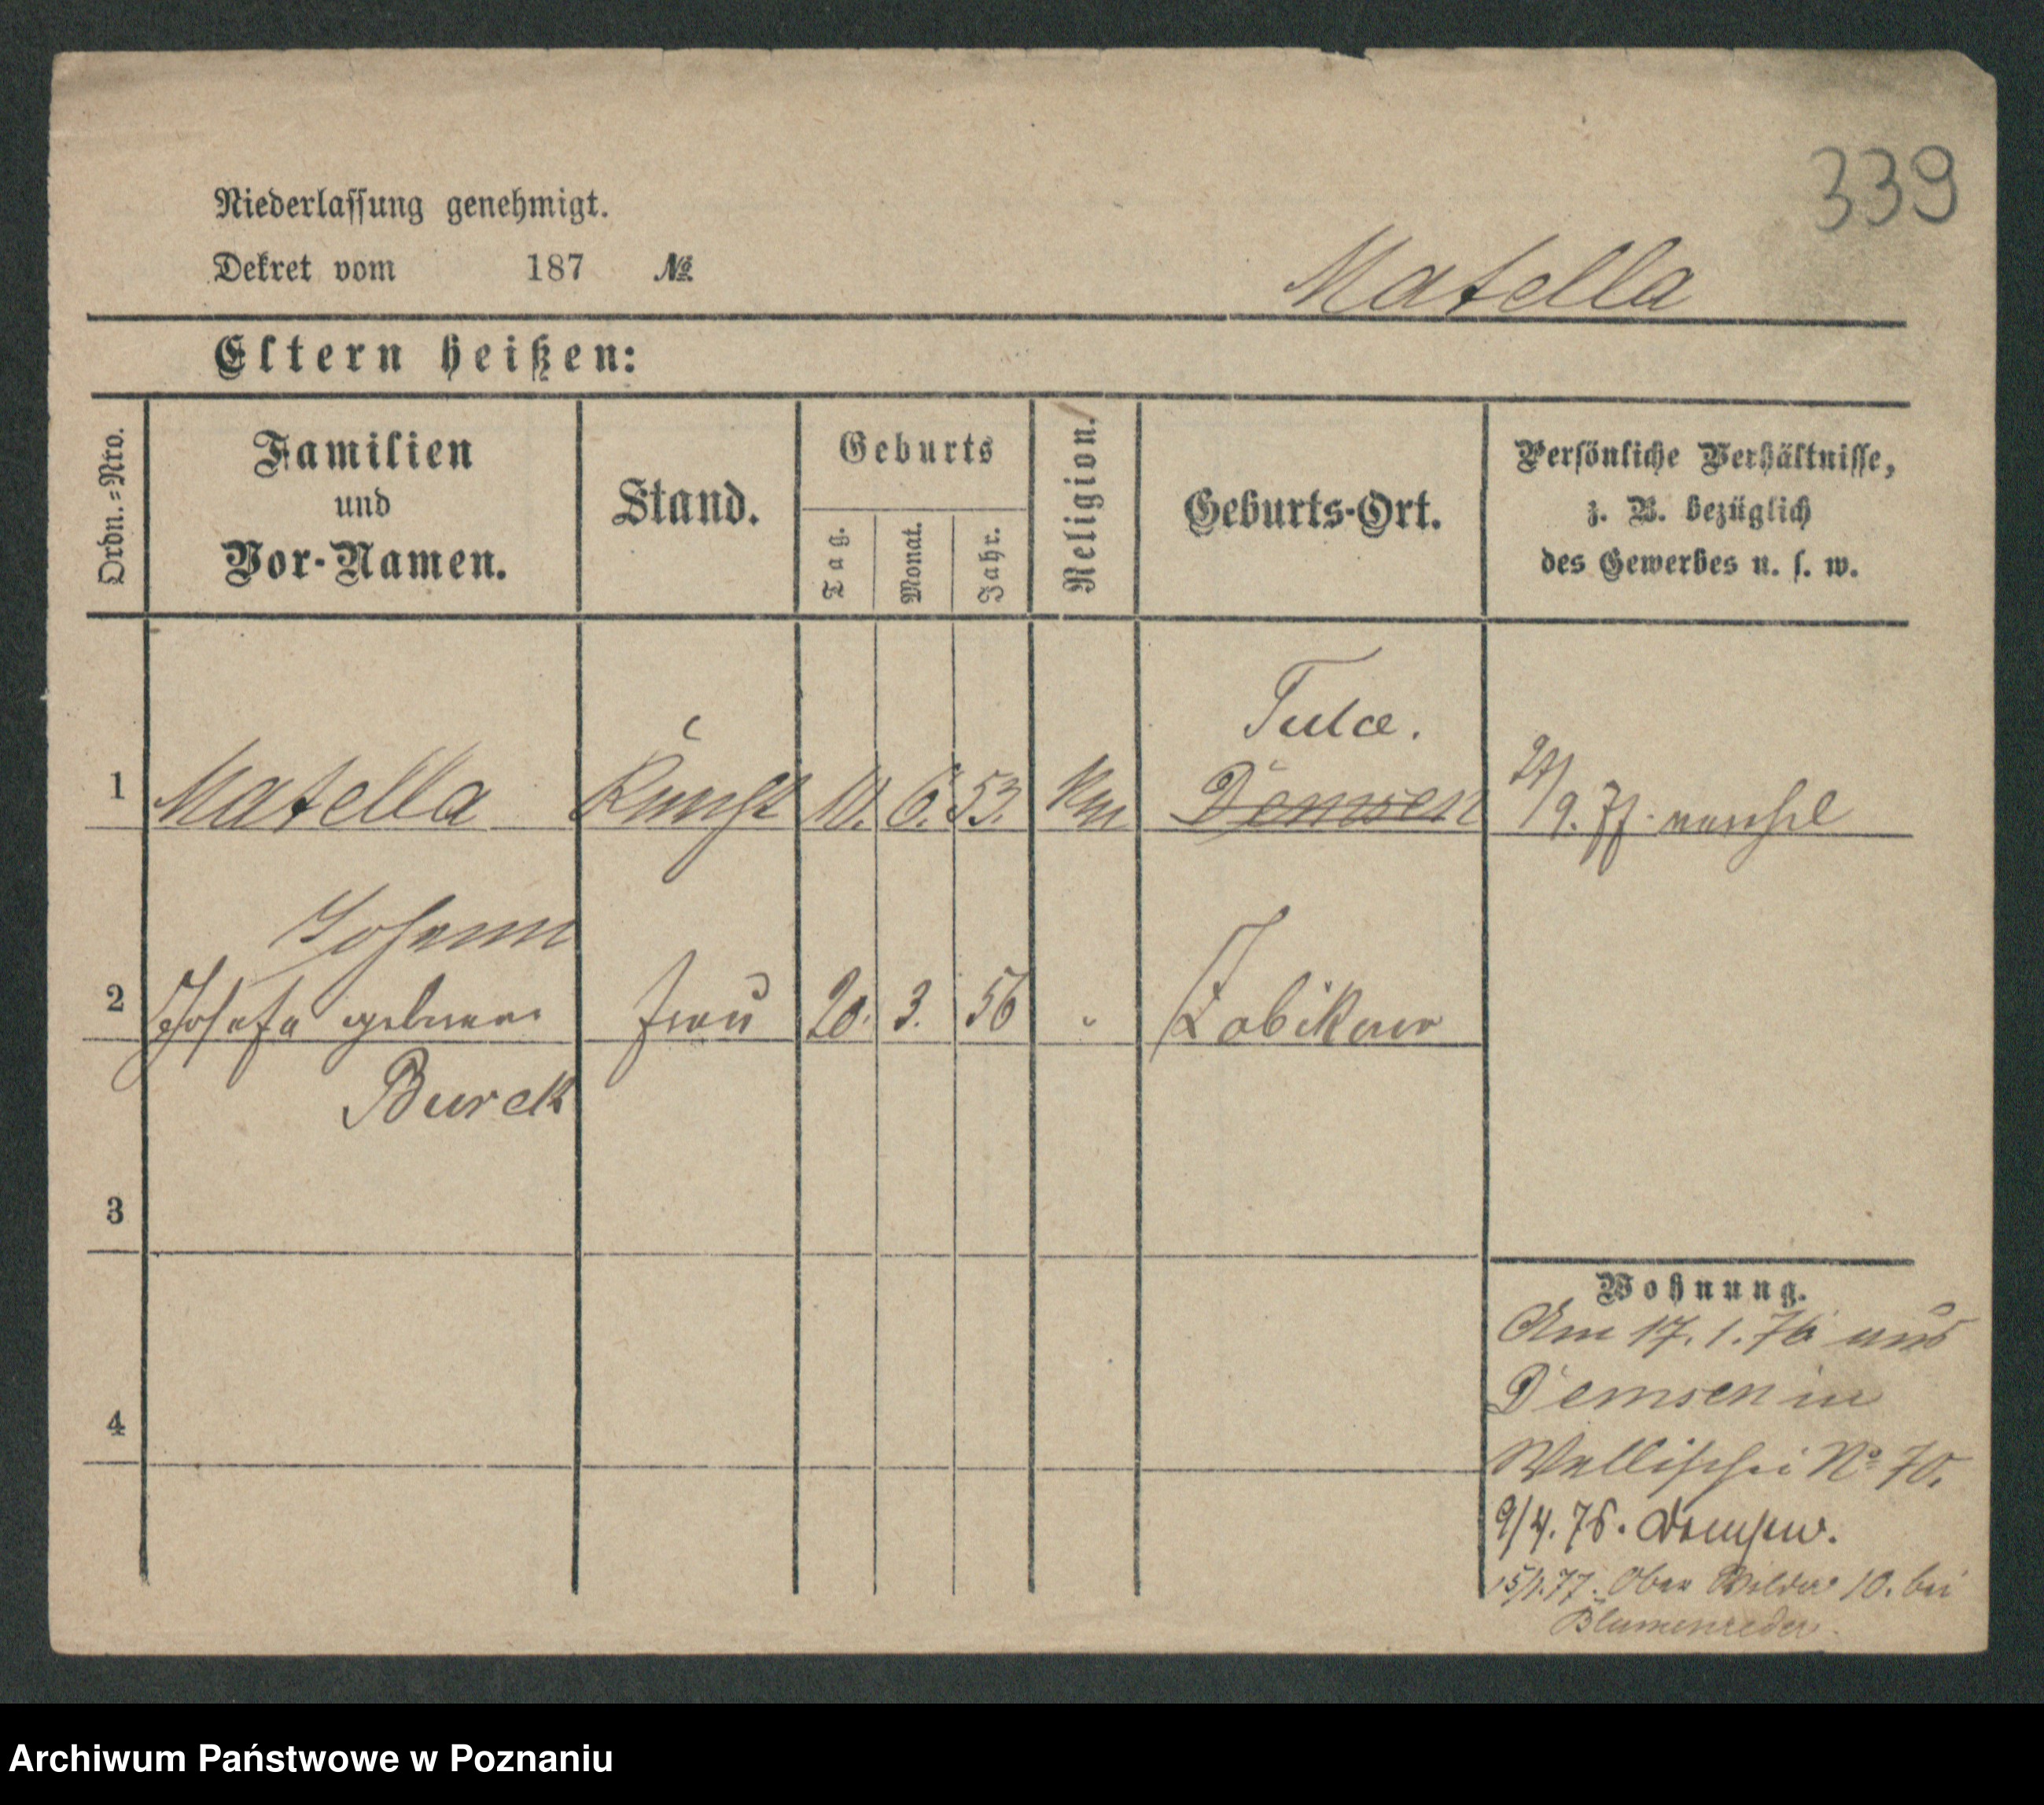 339
Niederlassung genehmigt.
Dekret vom 187 №
Matella
Eltern heißen:
Ordn.=Nro.
Familien
und
Vor-Namen.
Stand.
Geburts
Tag.
Monat.
Jahr.
Religion.
Geburts-Ort.
Persönliche Verhältnisse,
z. B. bezüglich
des Gewerbes u. s. w.
Tulce.
1 Matella 10. 6. 53. Demsen 27/9. 77.
Johann
2 Josefa geborene Frau 20. 3. 56 " Zabikowo
Burek
3
4
Wohnung.
Am 17.1.76 aus
Demsen in
Wallischei No 70.
9/4. 76. Demsen.
15/1.77. Ober Wilda 10. bei
Blumenreder.
Archiwum Państwowe w Poznaniu